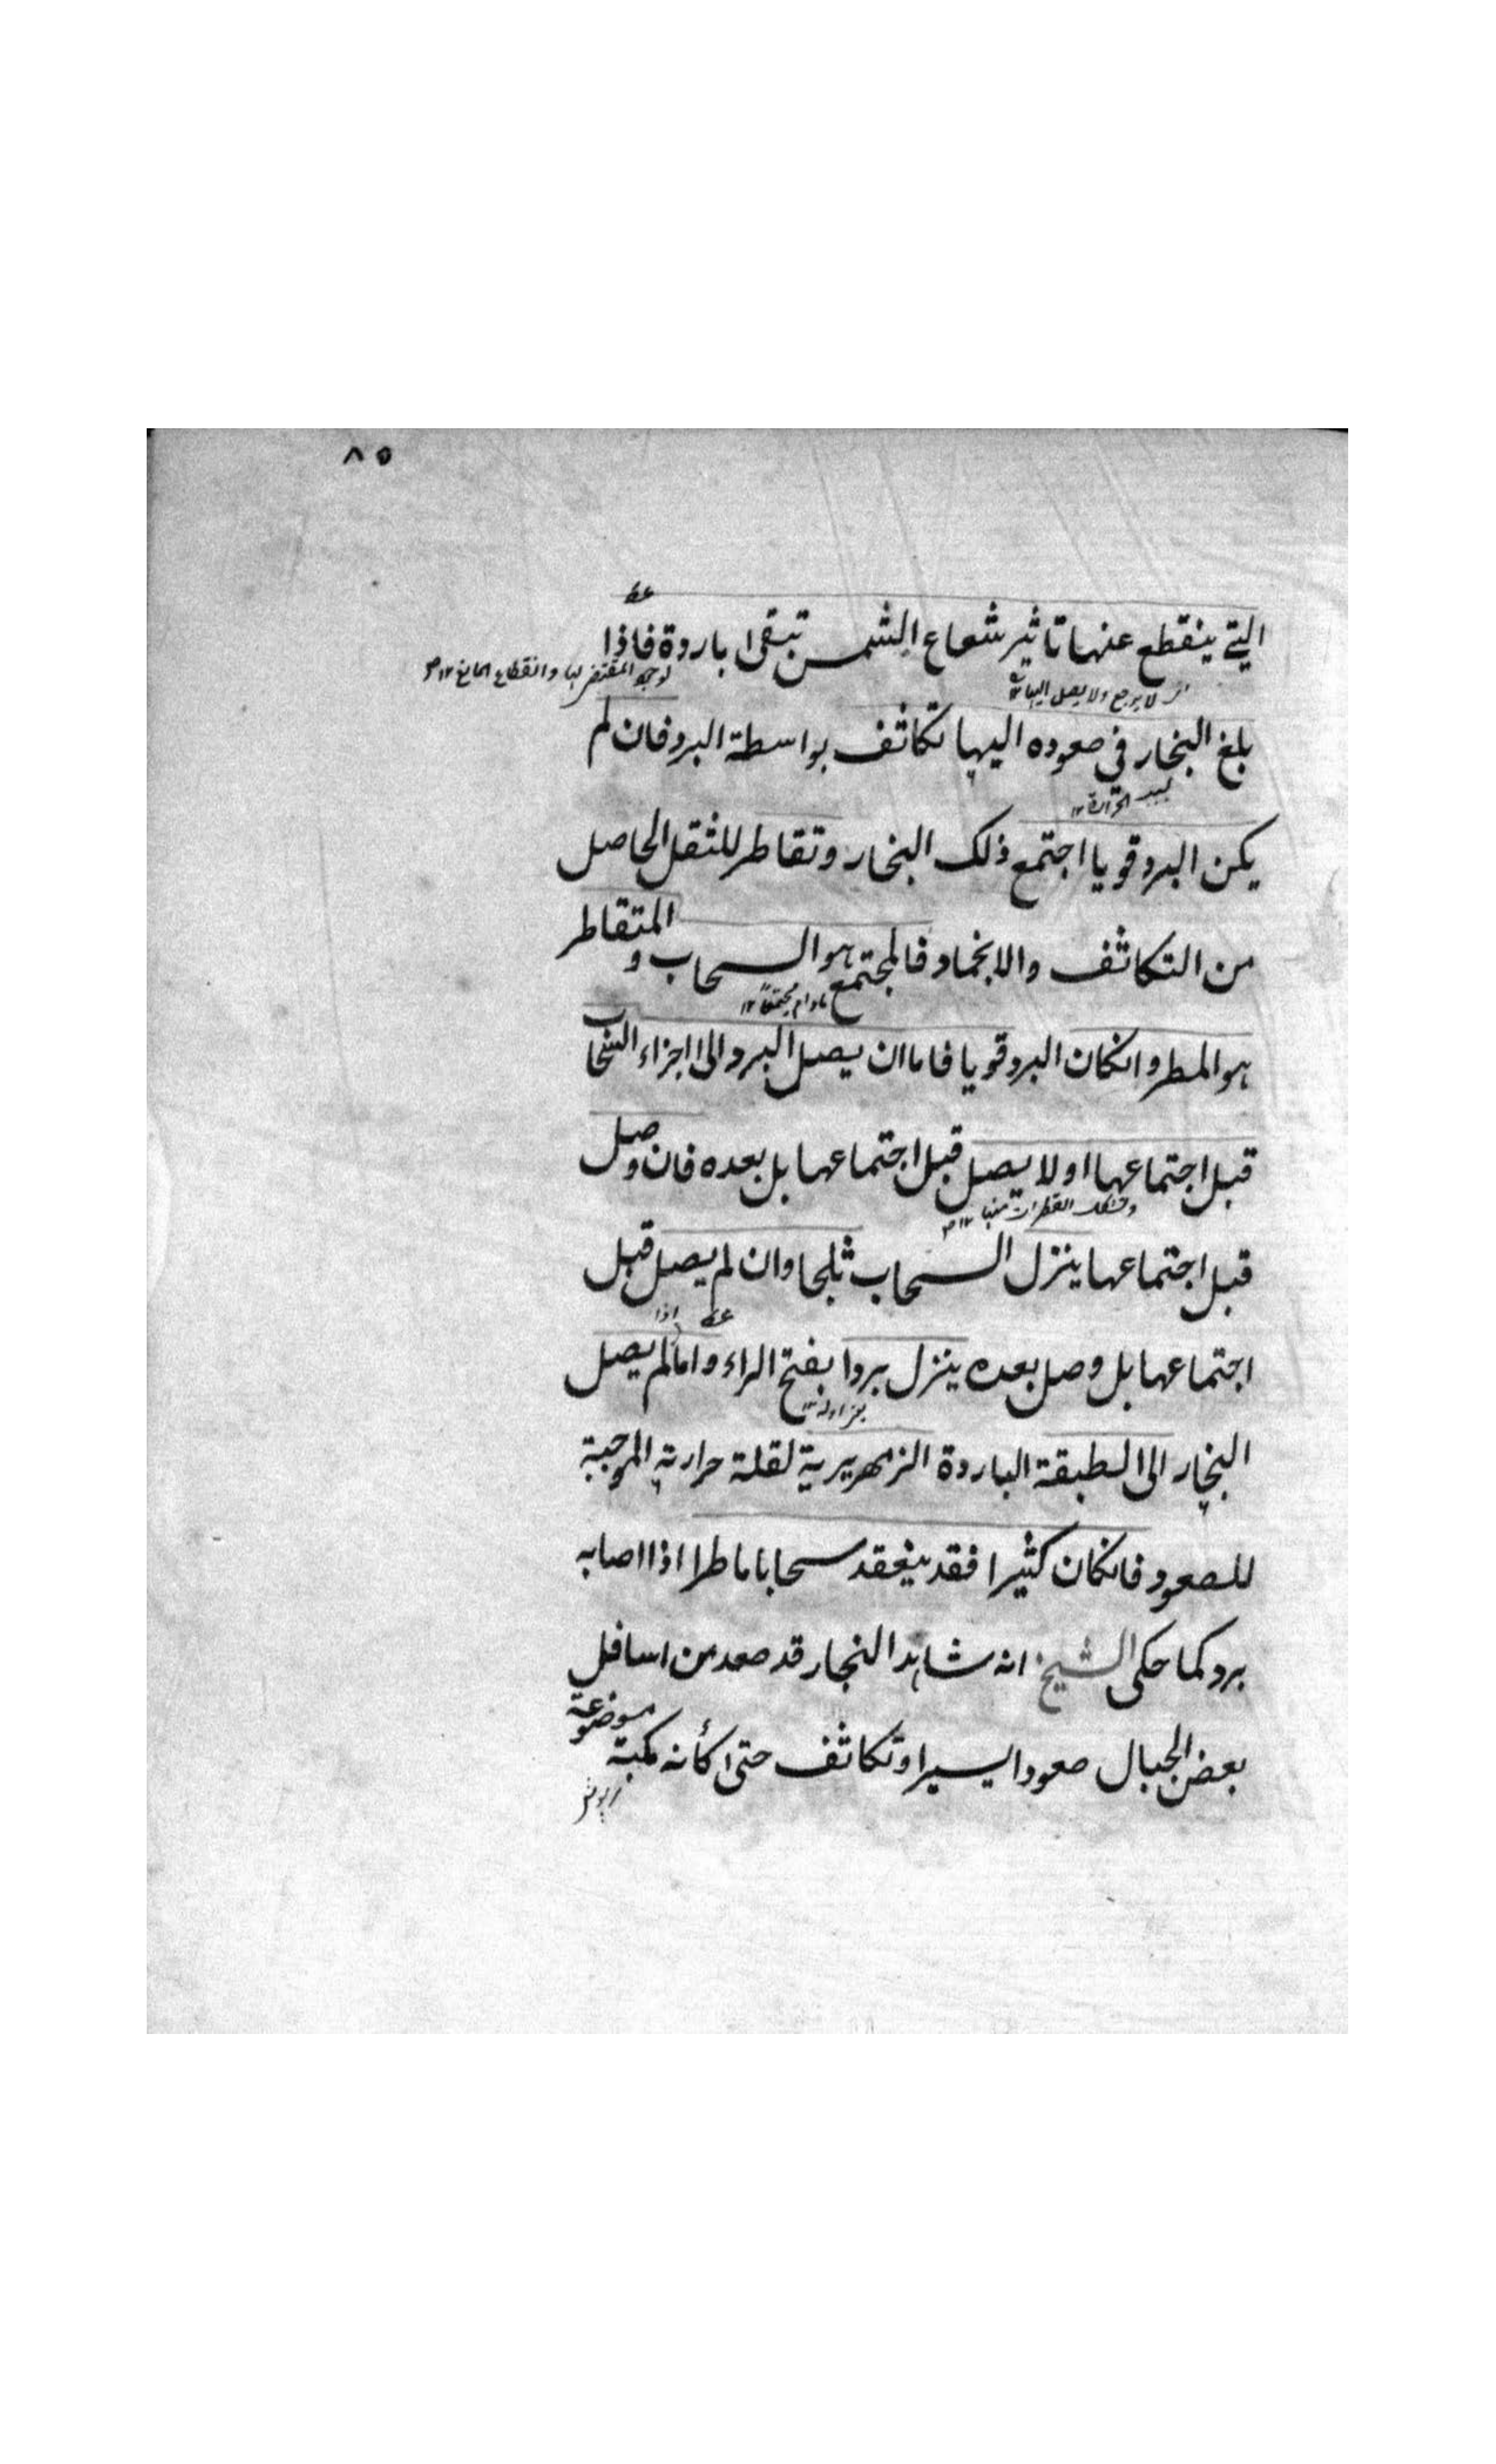 ٨٥
التي ينقطع عنها تاثير شعاع الشمس تبقى باردة فاذا
لا يرجع ولا يصل اليها ١٢
لوجود المقتضى لها وانقطاع المانع ١٢
بلغ البخار في صعوده اليها تكاثف بواسطة البرد فان لم
يكن البرد قويا اجتمع ذلك البخار وتقاطر للثقل الحاصل
من التكاثف والانجماد فالمجتمع هو السحاب و المتقاطر
مادام مجتمعاً ١٢
هو المطر وانكان البرد قويا فاما ان يصل البرد الى اجزاء السحاب
قبل اجتماعها او لا يصل قبل اجتماعها بل بعده فان وصل
قبل اجتماعها ينزل السحاب ثلجا وان لم يصل قبل
اجتماعها بل وصل بعده ينزل بردا بفتح الراء واما اذا لم يصل
البخار الى الطبقة الباردة الزمهريرية لقلة حرارته الموجبة
للصعود فانكان كثيرا فقد ينعقد سحابا ماطرا اذا اصابه
برد كما حكى الشيخ انه شاهد البخار قد صعد من اسافل
بعض الجبال صعودا يسيرا وتكاثف حتى كأنه مكبة موضوعة